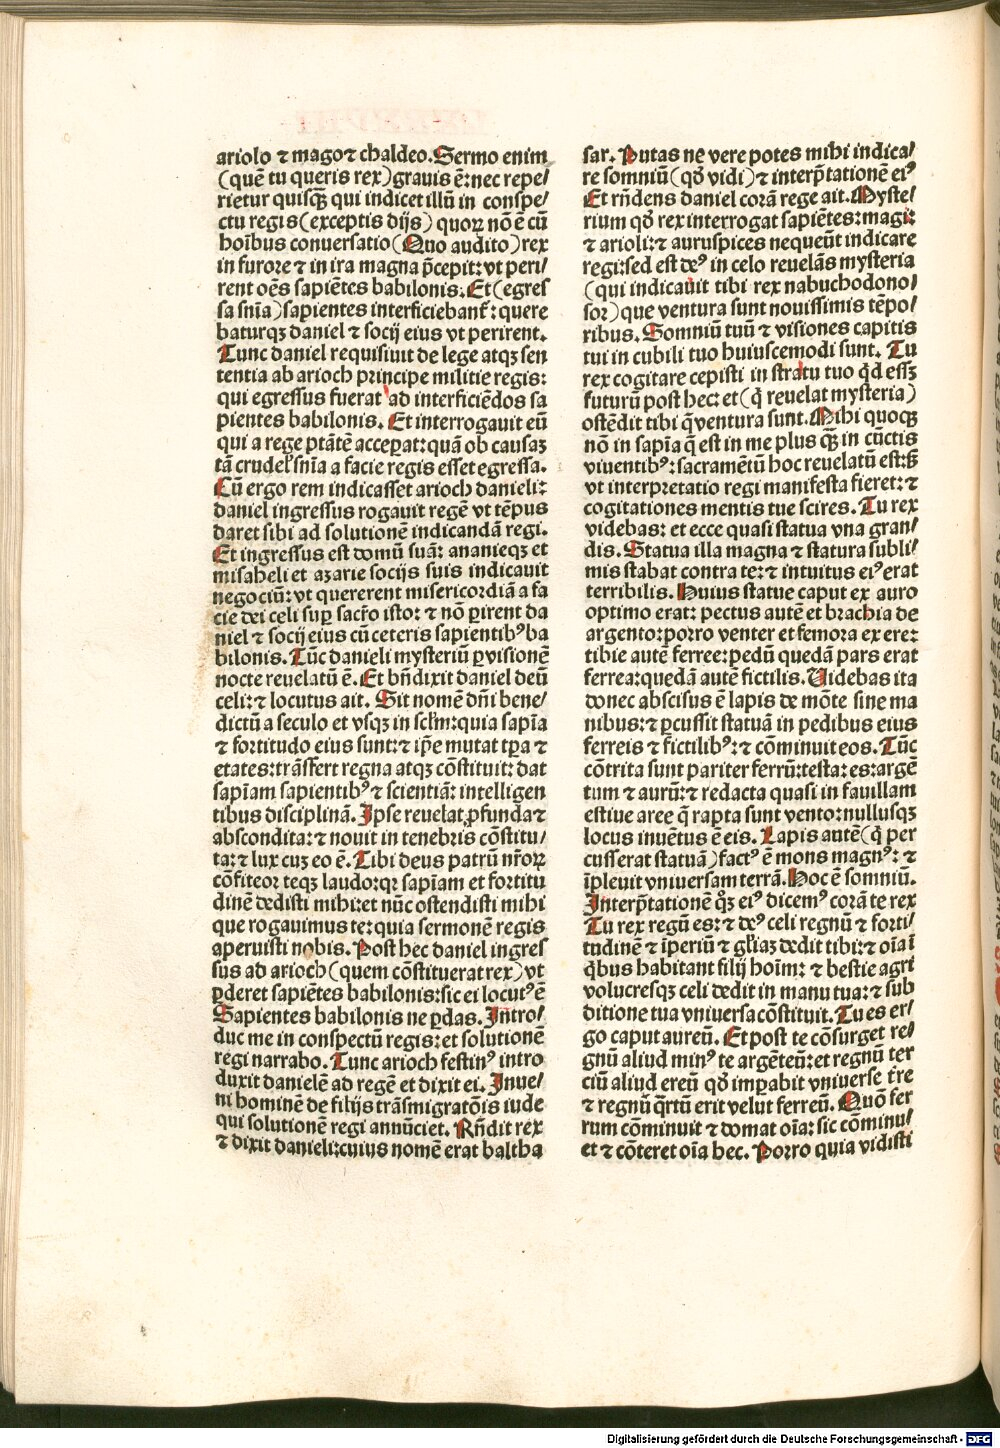 ariolo ⁊ mago⁊ chaldeo. Sermo enim
(quē tu queris rex) grauis ē: nec repe/
rietur quisqȝ qui indicet illū in conspe/
ctu regis (exceptis dijs) quoꝝ nō ē cū
hoībus conuersatio (Quo audito) rex
in furore ⁊ in ira magna p̄cepit: vt peri/
rent oēs sapiētes babilonis. Et (egres
sa snīa) sapientes interficiebant̄: quere
baturqȝ daniel ⁊ socij eius vt perirent.
Tunc daniel requisiuit de lege atqȝ sen
tentia ab arioch principe militie regis:
qui egressus fuerat ad interficiēdos sa
pientes babilonis. Et interrogauit eū
qui a rege ptātē acceꝑat: quā ob causaȝ
tā crudel̕ snīa a facie regis esset egressa.
Cū ergo rem indicasset arioch danieli:
daniel ingressus rogauit regē vt tēpus
daret sibi ad solutionē indicandā regi.
Et ingressus est domū suā: ananieqȝ et
misaheli et azarie socijs suis indicauit
negociū: vt quererent misericordiā a fa
cie dei celi suꝑ sacrō isto: ⁊ nō ꝑirent da
niel ⁊ socij eius cū ceteris sapientibꝰ ba
bilonis. Tūc danieli mysteriū ꝑ visionē
nocte reuelatū ē. Et bn̄dixit daniel deū
celi: ⁊ locutus ait. Sit nomē dn̄i bene/
dictū a seculo et vsqȝ in sclm̄: quia sapīa
⁊ fortitudo eius sunt: ⁊ ip̄e mutat tꝑa ⁊
etates: trāsfert regna atqȝ cōstituit: dat
sapīam sapientibꝰ ⁊ scientiā: intelligen
tibus disciplinā. Ipse reuelat ꝓfunda ⁊
abscondita: ⁊ nouit in tenebris cōstitu/
ta: ⁊ lux cuȝ eo ē. Tibi deus patrū nr̄oꝝ
cōfiteor teqȝ laudo: qꝛ sapīam et fortitu
dinē dedisti mihi: et nūc ostendisti mihi
que rogauimus te: quia sermonē regis
aperuisti nobis. Post hec daniel ingres
sus ad arioch (quem cōstituerat rex) vt
ꝑderet sapiētes babilonis: sic ei locutꝰ ē
Sapientes babilonis ne ꝑdas. Intro/
duc me in conspectū regis: et solutionē
regi narrabo. Tunc arioch festinꝰ intro
duxit danielē ad regē et dixit ei. Inue/
ni hominē de filijs trāsmigratōis iude
qui solutionē regi annūciet. Rn̄dit rex
⁊ dixit danieli: cuius nomē erat baltha
sar. Putas ne vere potes mihi indica/
re somniū (qđ vidi) ⁊ interp̄tationē eiꝰ
Et rn̄dens daniel corā rege ait. Myste/
rium qđ rex interrogat sapiētes: magi:
⁊ arioli: ⁊ auruspices nequeūt indicare
regi: sed est deꝰ in celo reuelās mysteria
(qui indicauit tibi rex nabuchodono/
sor) que ventura sunt nouissimis tēpo/
ribus. Somniū tuū ⁊ visiones capitis
tui in cubili tuo huiuscemodi sunt. Tu
rex cogitare cepisti in stratu tuo qd̄ esseȝ
futurū post hec: et (q̄ reuelat mysteria)
ostēdit tibi q̄ ventura sunt. Mihi quoqȝ
nō in sapīa q̄ est in me plus qȝ in cūctis
viuentibꝰ: sacramētū hoc reuelatū est: sȝ
vt interpretatio regi manifesta fieret: ⁊
cogitationes mentis tue scires. Tu rex
videbas: et ecce quasi statua vna gran/
dis. Statua illa magna ⁊ statura subli/
mis stabat contra te: ⁊ intuitus eiꝰ erat
terribilis. Huius statue caput ex auro
optimo erat: pectus autē et brachia de
argento: porro venter et femora ex ere:
tibie autē ferree: pedū quedā pars erat
ferrea: quedā autē fictilis. Uidebas ita
donec abscisus ē lapis de mōte sine ma
nibus: ⁊ ꝑcussit statuā in pedibus eius
ferreis ⁊ fictilibꝰ: ⁊ cōminuit eos. Tūc
cōtrita sunt pariter ferrū: testa: es: argē
tum ⁊ aurū: ⁊ redacta quasi in fauillam
estiue aree q̄ rapta sunt vento: nullusqȝ
locus inuētus ē eis. Lapis autē (q̄ per
cusserat statuā) factꝰ ē mons magnꝰ: ⁊
īpleuit vniuersam terrā. Hoc ē somniū.
Interp̄tationē qȝ eiꝰ dicemꝰ corā te rex
Tu rex regū es: ⁊ deꝰ celi regnū ⁊ forti/
tudinē ⁊ īperiū ⁊ gl̄iaȝ dedit tibi: ⁊ oīa ī
q̄bus habitant filij hoīm: ⁊ bestie agri
volucresqȝ celi dedit in manu tua: ⁊ sub
ditione tua vniuersa cōstituit. Tu es er/
go caput aureū. Et post te cōsurget re/
gnū aliud minꝰ te argēteū: et regnū ter
ciū aliud ereū qđ imꝑabit vniuerse tr̄re
⁊ regnū q̄rtū erit velut ferreū. Quō fer
rum cōminuit ⁊ domat oīa: sic cōminu/
et ⁊ cōteret oīa hec. Porro quia vidisti
Digitalisierung gefördert durch die Deutsche Forschungsgemeinschaft - DFG